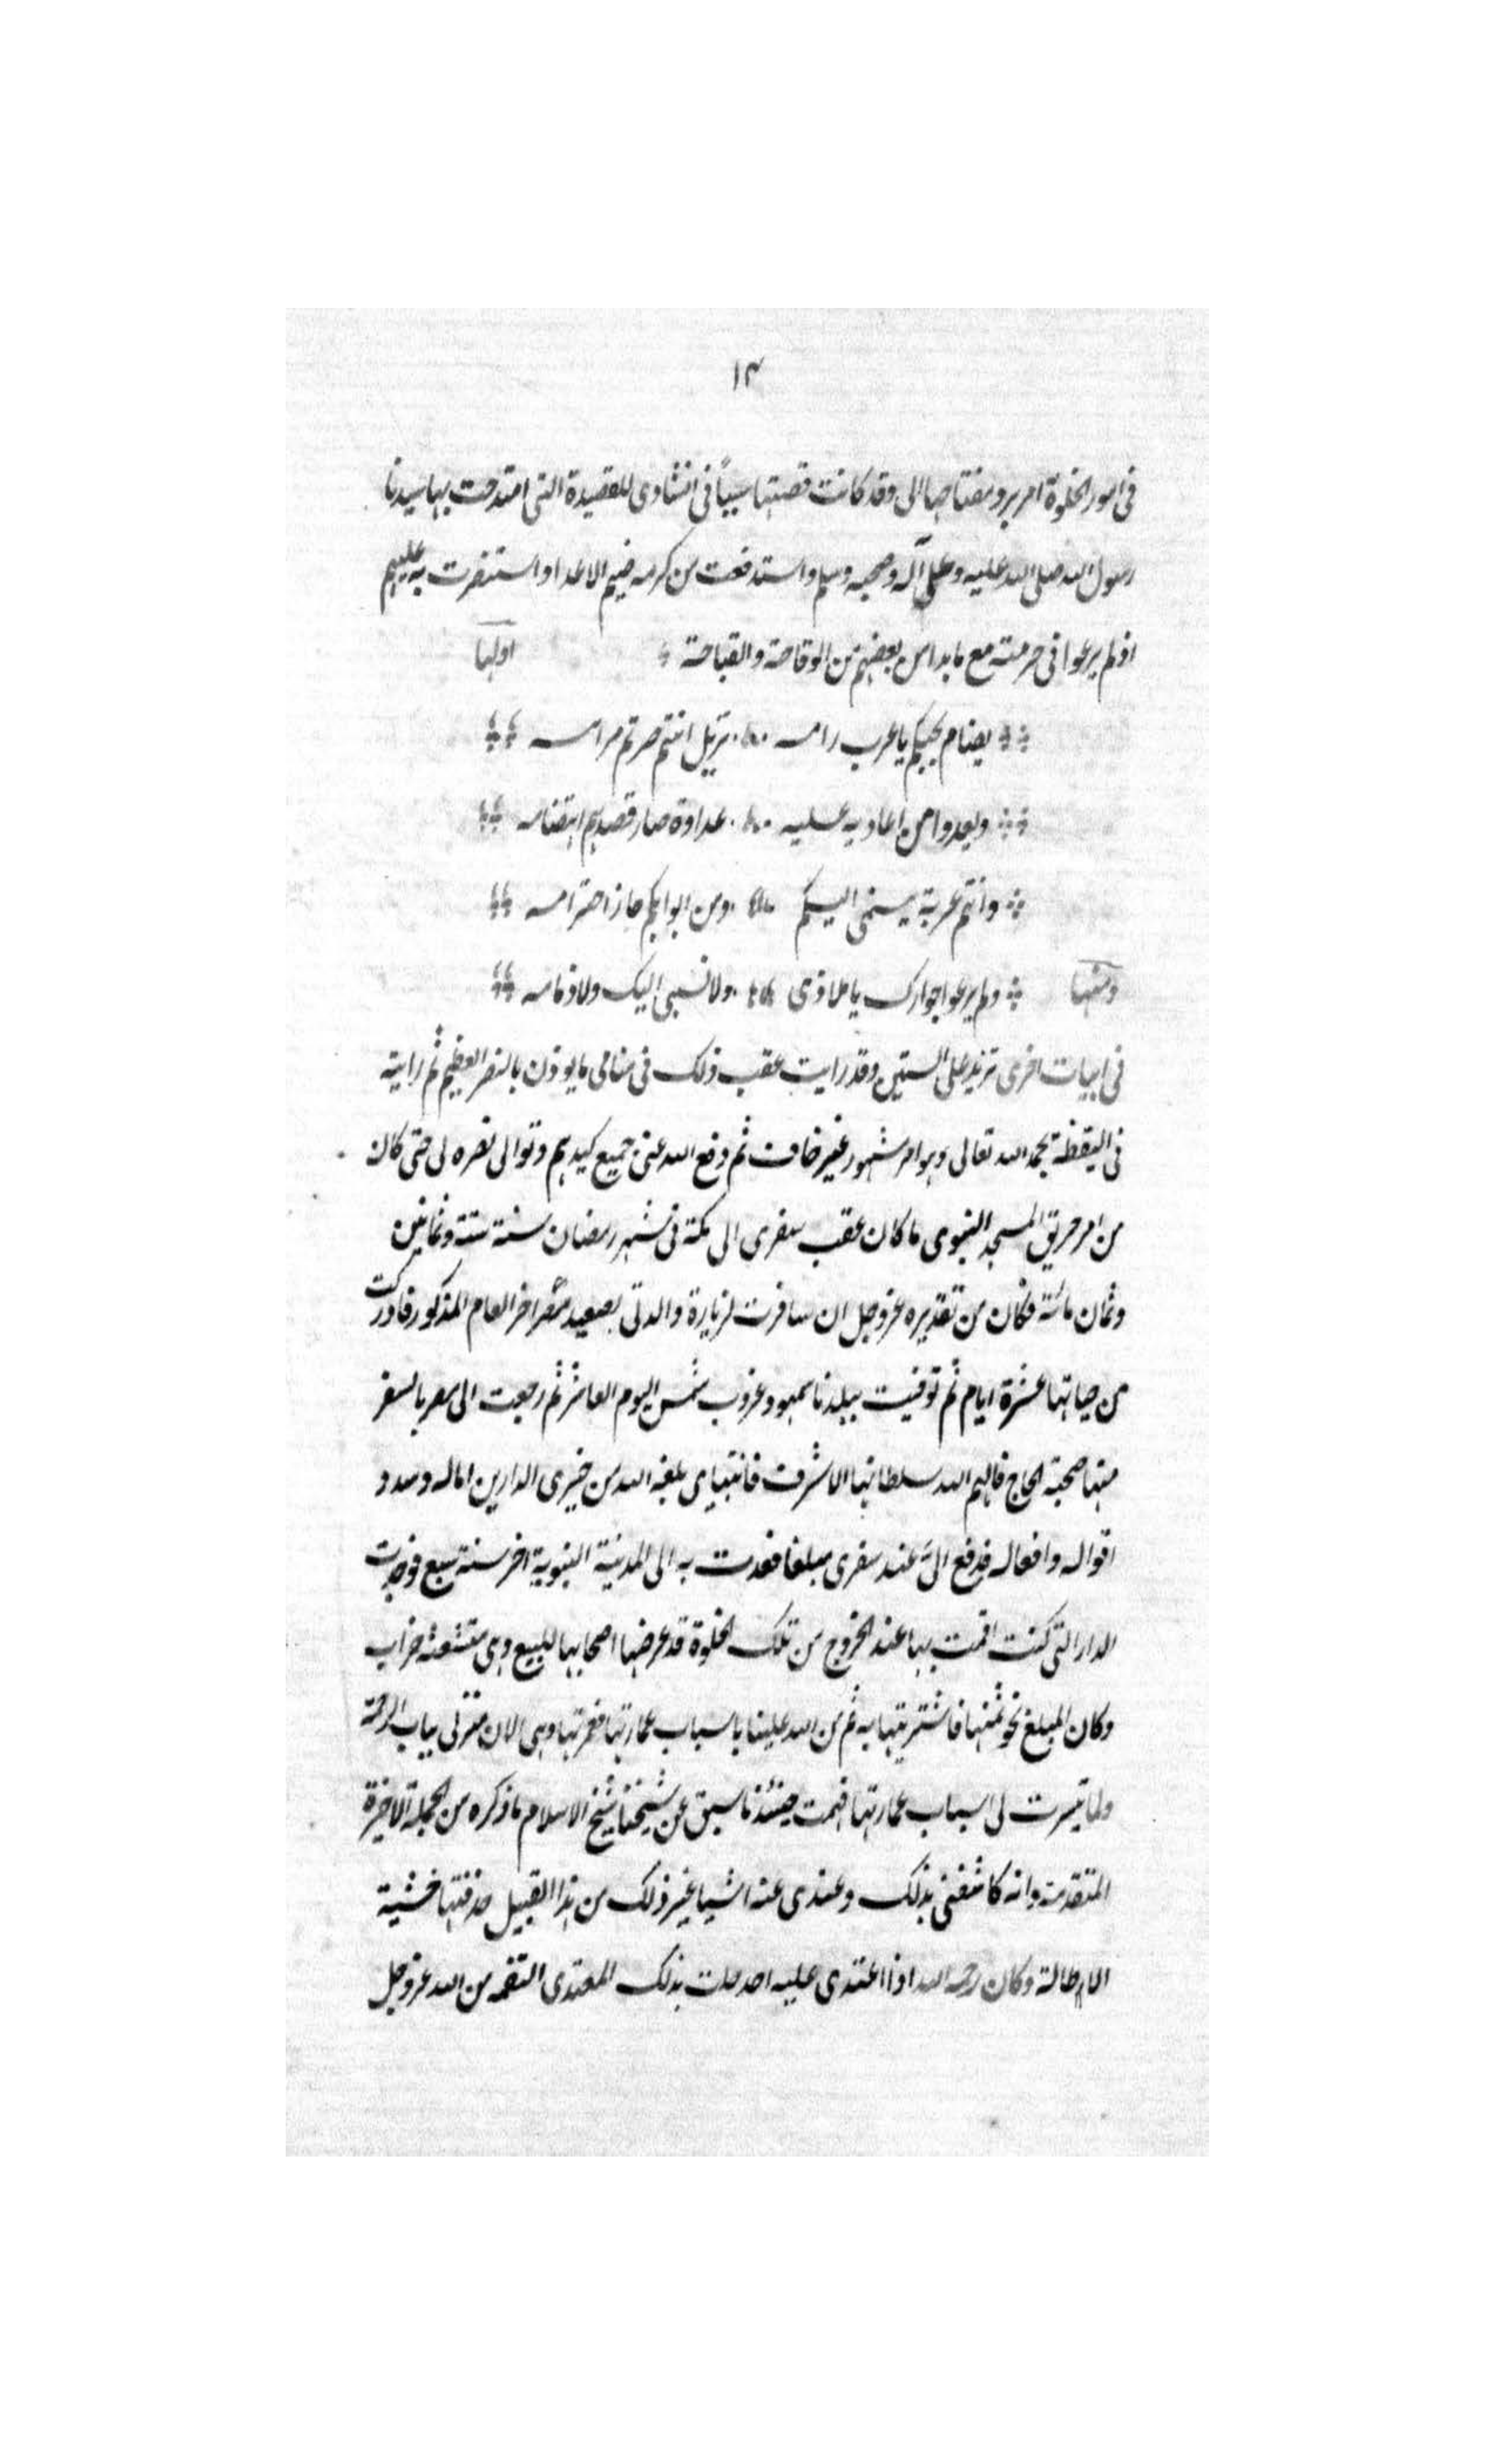 ١٣
فى امور الخلوة امر برد مفتاحها الى وقد كانت قصتها سببًا فى انشادى للقصيدة التى امتدحت بها سيدنا
رسول الله صلى الله عليه وعلى آله وصحبه وسلم واستدفعت من كرمه ضيم الاعدا واستنصرت به عليهم
اذ لم يرعوا فى حرمته مع ما بدا من بعضهم من الوقاحة والقباحة اولها
يضام بحيكم يا عرب رامه نزيل انتم صرتم مرامه
ويعدوا من اعاديه عليه عداوة صار قصدهم اهتضامه
وانتم عربة ينمى اليكم ومن ابوابكم حاز احترامه
ومنها ولم يرعوا جوارك يا ملاذى ولا نسبى اليك ولا ذمامه
فى ابيات اخرى تزيد على الستين وقد رايت عقب ذلك فى منامى ما يوذن بالنصر العظيم ثم رايته
فى اليقظة بحمد الله تعالى وهو امر مشهور غير خاف ثم دفع الله عنى جميع كيدهم وتوالى نصره لى حتى كان
من امر حريق المسجد النبوى ما كان عقب سفرى الى مكة فى شهر رمضان سنة ستة وثمانين
وثمان مائة فكان من تقديره عز وجل ان سافرت لزيارة والدتى بصعيد مصر اخر العام المذكور فادركت
من حياتها عشرة ايام ثم توفيت ببلدنا سمهود غروب شمس اليوم العاشر ثم رجعت الى مصر بالسفر
منها صحبة الحاج فالهم الله سلطانها الاشرف قانتباى بلغه الله من خيرى الدارين اماله وسدد
اقواله وافعاله فدفع الىَّ عند سفرى مبلغا فعدت به الى المدينة النبوية اخر سنة سبع فوجدت
الدار التى كنت اقمت بها عند الخروج من تلك الخلوة قد عرضها اصحابها للبيع وهى متشعثة خراب
وكان المبلغ نحو ثمنها فاشتريتها به ثم من الله علينا باسباب عمارتها فعمرتها وهى الان منزلى بباب الرحمة
ولما تيسرت لى اسباب عمارتها فهمت حينئذ ما سبق عن شيخنا شيخ الاسلام ما ذكره من الجملة الاخيرة
المتقدمة وانه كاشفنى بذلك وعندى عنه اشيا غير ذلك من هذا القبيل حذفتها خشية
الاطالة وكان رحمه الله اذا اعتدى عليه احد حلت بذلك المعتدى النقمة من الله عز وجل